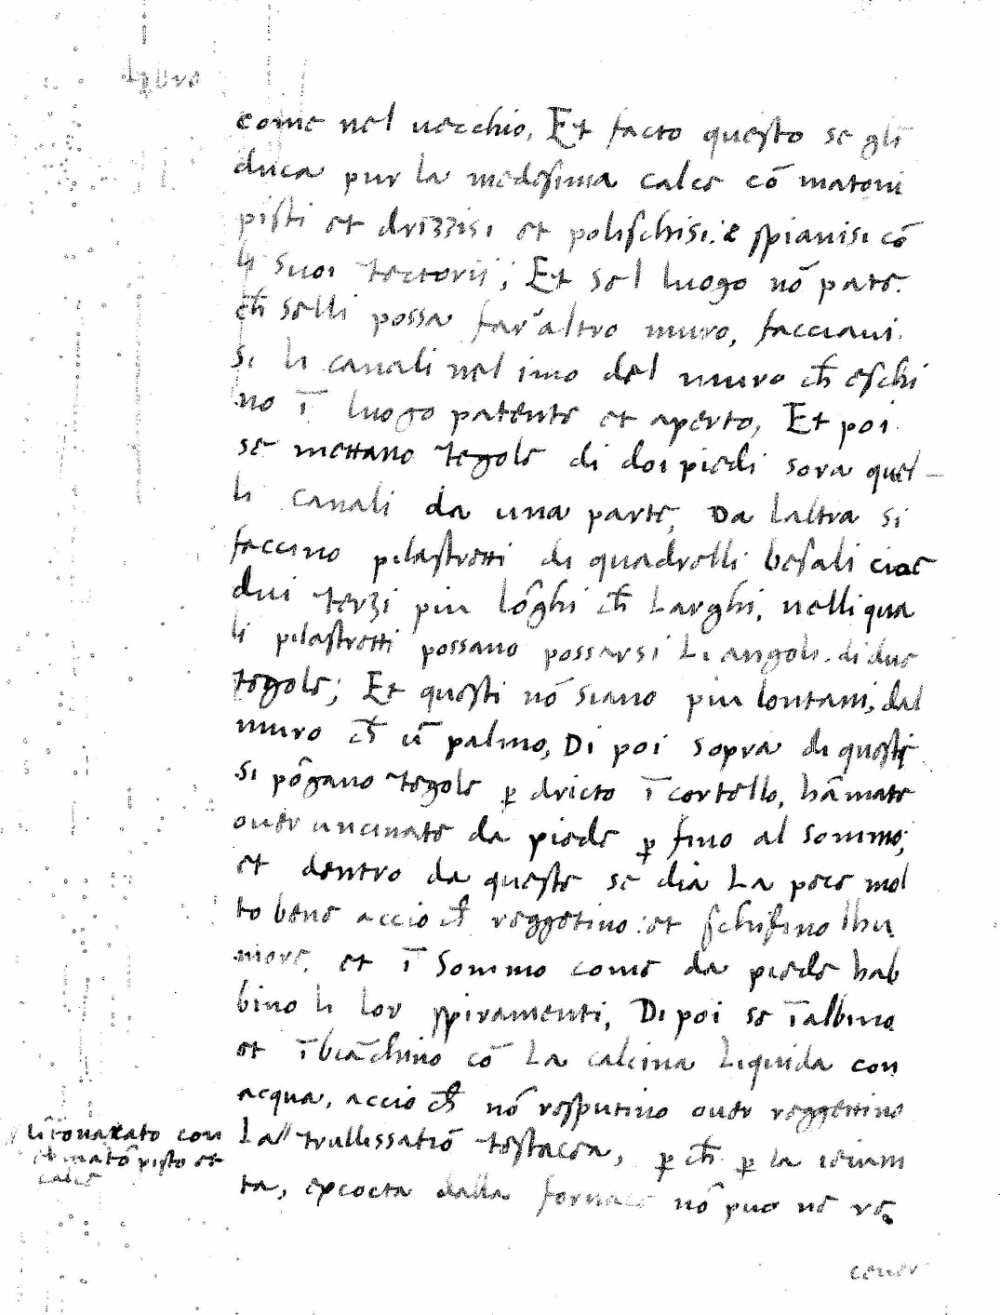 Libro
come nel uecchio, Et facto questo se gli
duca pur la medesima calce cō matoni
pisti et drizzisi et polischisi. e spianisi cō
li suoi tectorii; Et sel luogo nō pate.
ch̄ selli possa far' altro muro, facciaui.
si li canali nel imo del muro ch̄ eschi
no ī luogo patente et aperto, Et poi.
se mettano tegole di doi piedi sora quel-
li canali da una parte, Da laltra si
faccino pilastretti di quadrelli besali cioe
dui terzi piu lōghi ch̄ larghi, nelli qua
li pilastretti possano possarsi li angoli. di due
tegole; Et questi nō siano piu lontani, dal
muro ch̄ ū palmo, Di poi sopra di questi
si pōgano tegole ꝑ dricto ī cortello, hāmate
ouer uncinate da piede ꝑ fino al sommo;
et dentro da queste se dia la pece mol
to bene accio ch̄ reggettino: et schifino lhu
more, et ī sommo come da piede hab
bino li lor spiramenti, Di poi se īalbino
et ībiāchino cō la calcina liquida con
acqua, accio ch̄ nō resputino ouer reggettino
la // trullissatiō testacea, ꝑ ch̄ ꝑ la ieiuni
ta, excocta dalla fornace nō puo ne re
// litonazato con
el matō pisto et
calce
ceuer